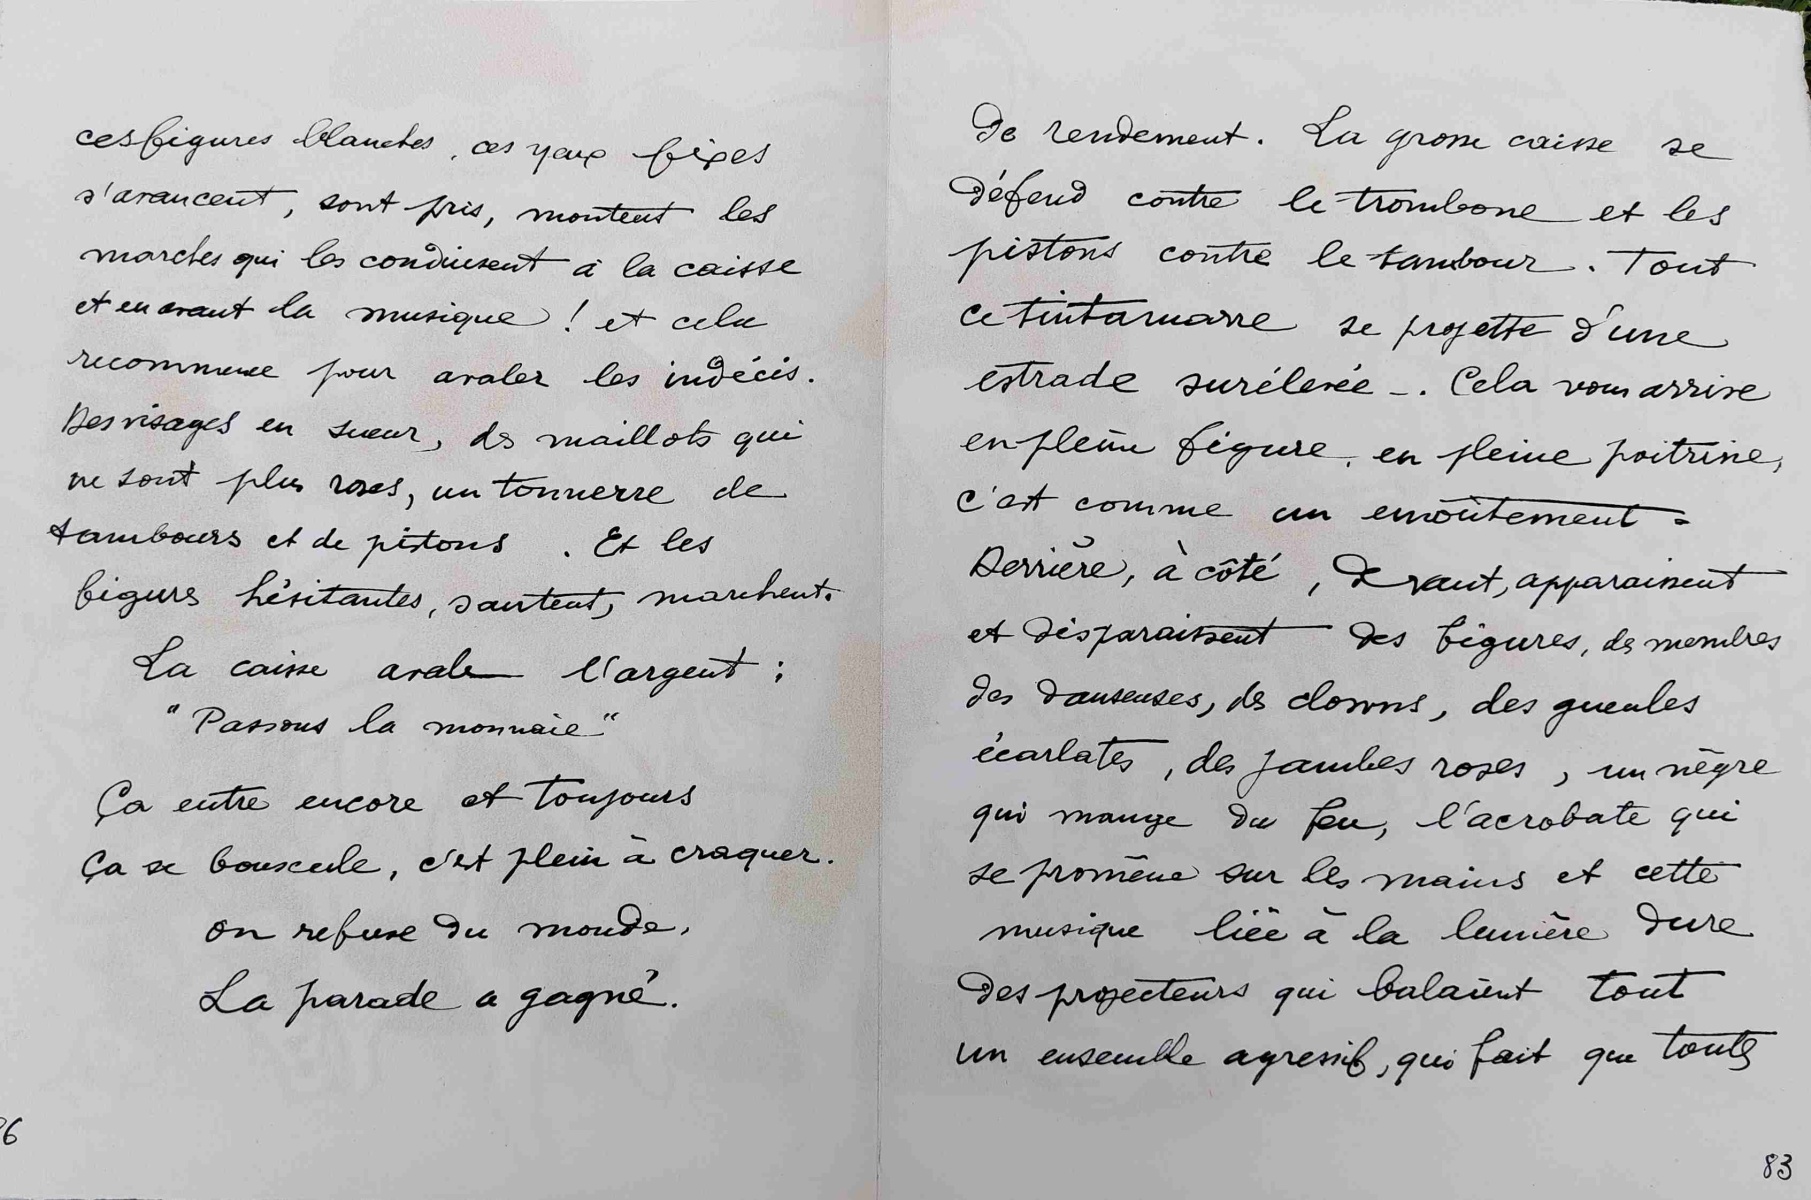 ces figures blanches, ces yeux fixes
s'avancent, sont pris, montent les
marches qui les conduisent à la caisse
et en avant la musique ! et cela
recommence pour avaler les indécis.
Des visages en sueur, des maillots qui
ne sont plus roses, un tonnerre de
tambours et de pistons . Et les
figures hésitantes, sautent, marchent.
La caisse avale l'argent :
"Passons la monnaie"
Ça entre encore et toujours
Ça se bouscule, c'est plein à craquer.
on refuse du monde,
La parade a gagné.
86
de rendement. La grosse caisse se
défend contre le trombone et les
pistons contre le tambour. Tout
ce tintamarre se projette d'une
estrade surélevée -. Cela vous arrive
en pleine figure, en pleine poitrine,
c'est comme un envoûtement -
Derrière, à côté, Devant, apparaissent
et disparaissent des figures, des membres
des danseuses, des clowns, des gueules
écarlates, des jambes roses, un nègre
qui mange du feu, l'acrobate qui
se promène sur les mains et cette
musique liée à la lumière dure
des projecteurs qui balaient tout
un ensemble agressif, qui fait que toutes
83